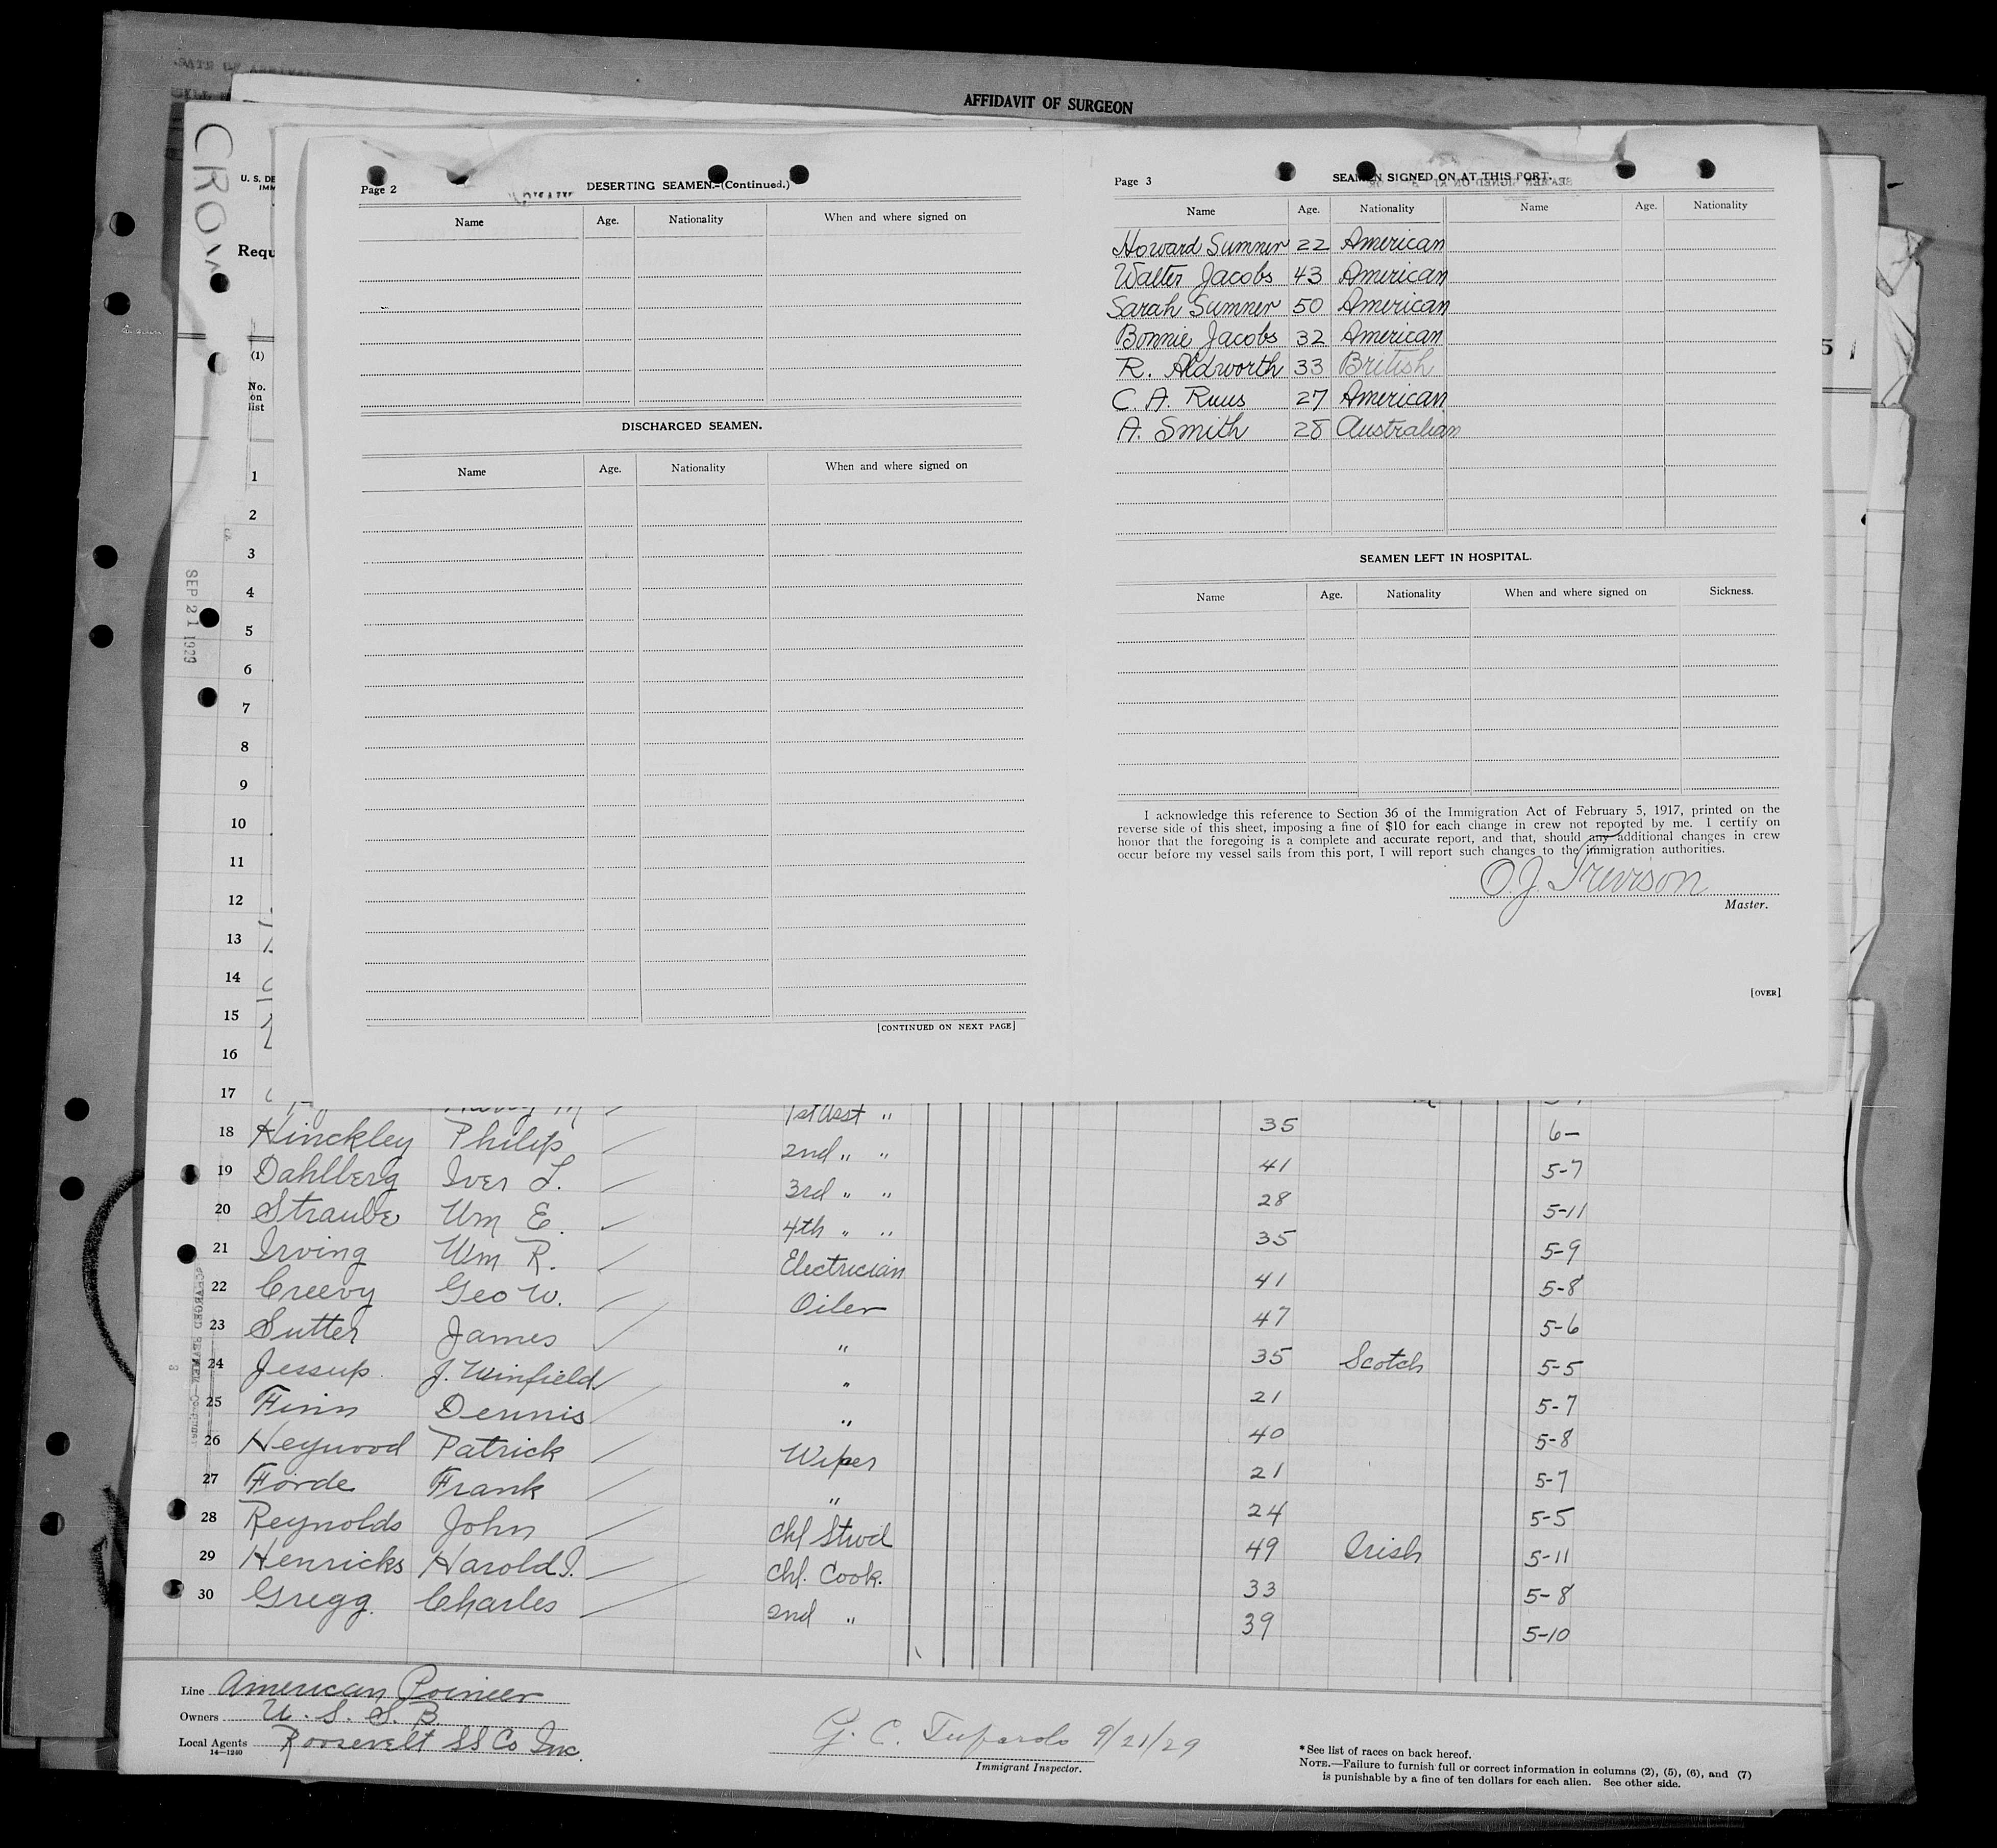 AFFIDAVIT OF SURGEON
CROW
U. S. DE
IMM
Requ
(1)
No.
on
list
SEP 21 1929
Page 2
DESERTING SEAMEN.—(Continued.)
Name Age. Nationality When and where signed on
DISCHARGED SEAMEN.
Name Age. Nationality When and where signed on
[CONTINUED ON NEXT PAGE]
Page 3
SEAMEN SIGNED ON AT THIS PORT.
Name Age. Nationality Name Age. Nationality
Howard Sumner 22 American
Walter Jacobs 43 American
Sarah Sumner 50 American
Bonnie Jacobs 32 American
R. Aldworth 33 British
C. A. Ruus 27 American
A. Smith 28 Australian
SEAMEN LEFT IN HOSPITAL.
Name Age. Nationality When and where signed on Sickness.
I acknowledge this reference to Section 36 of the Immigration Act of February 5, 1917, printed on the
reverse side of this sheet, imposing a fine of $10 for each change in crew not reported by me. I certify on
honor that the foregoing is a complete and accurate report, and that, should any additional changes in crew
occur before my vessel sails from this port, I will report such changes to the immigration authorities.
O. J. Trevison
Master.
[OVER]
5
1
2
3
4
5
6
7
8
9
10
11
12
13
14
15
16
17 1st Asst "
18 Hinckley Philip 2nd " " 35 6-
19 Dahlberg Iver L. 3rd " " 41 5-7
20 Straube Wm E. 4th " " 28 5-11
21 Irving Wm R. Electrician 35 5-9
22 Creevy Geo W. Oiler 41 5-8
23 Sutter James " 47 5-6
24 Jessup J. Winfield " 35 Scotch 5-5
25 Finn Dennis " 21 5-7
26 Heywood Patrick Wiper 40 5-8
27 Forde Frank " 21 5-7
28 Reynolds John Chf Stwd 24 5-5
29 Henricks Harold I. Chf. Cook. 49 Irish 5-11
30 Gregg Charles 2nd " 33 5-8
39 5-10
Line American Poineer
Owners U. S. S. B.
Local Agents Roosevelt SS Co Inc.
14-1240
G. C. Tufarolo 9/21/29
Immigrant Inspector.
*See list of races on back hereof.
NOTE.—Failure to furnish full or correct information in columns (2), (5), (6), and (7)
is punishable by a fine of ten dollars for each alien. See other side.